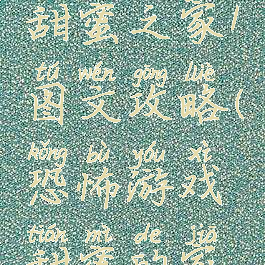 甜蜜之家/
tú wén gōng lüè
图文攻略(
kǒng bù yóu xì
恐怖游戏
tián mì de jiā
甜蜜的家